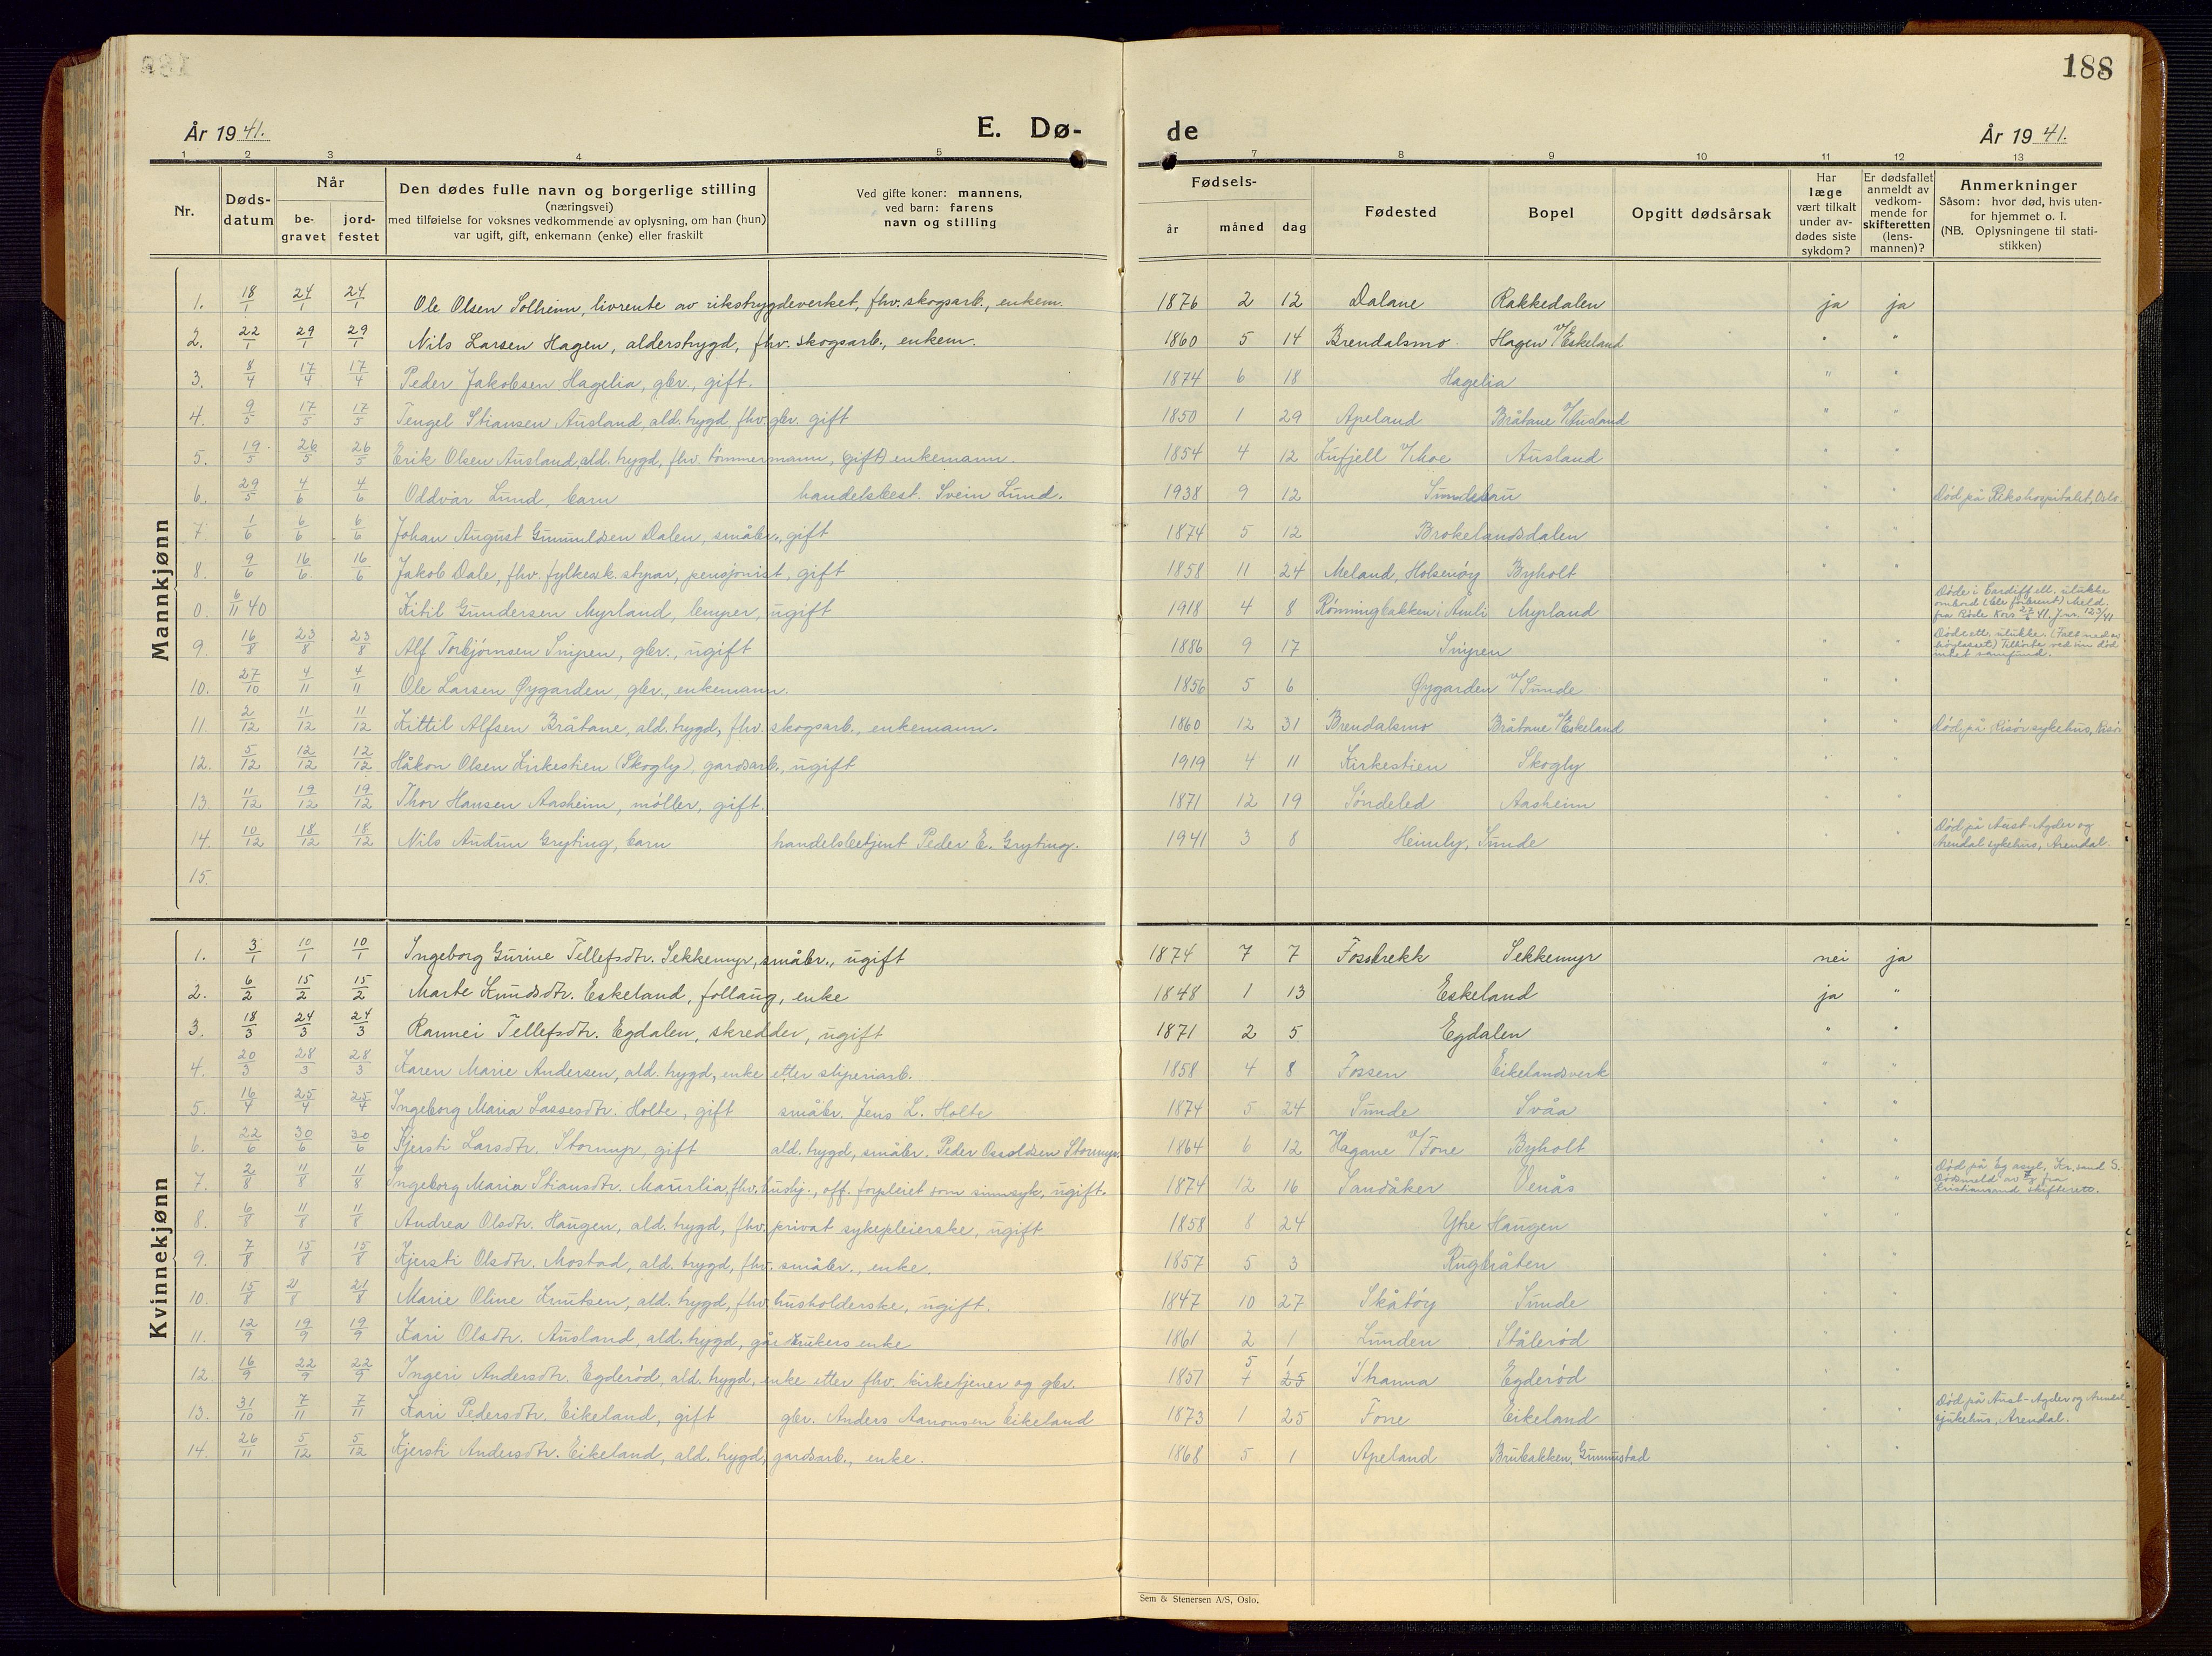 188
År 1941.
E. Dø-
de
År 1941.
1 2 3 4 5 6 7 8 9 10 11 12 13
Nr.
Døds-
datum
Når
be-
gravet
jord-
festet
Den dødes fulle navn og borgerlige stilling
(næringsvei)
med tilføielse for voksnes vedkommende av oplysning, om han (hun)
var ugift, gift, enkemann (enke) eller fraskilt
Ved gifte koner: mannens,
ved barn: farens
navn og stilling
Fødsels-
år måned dag
Fødested
Bopel
Opgitt dødsårsak
Har
læge
vært tilkalt
under av-
dødes siste
sykdom?
Er dødsfallet
anmeldt av
vedkom-
mende for
skifteretten
(lens-
mannen)?
Anmerkninger
Såsom: hvor død, hvis uten-
for hjemmet o. l.
(NB. Oplysningene til stati-
stikken)
Mannkjønn
1. 18/1 24/1 24/1 Ole Olsen Solheim, livrente av rikstrygdeverket, fhv. skogsarb., enkem. 1876 2 12 Dalane Rakkedalen ja ja
2. 22/1 29/1 29/1 Nils Larsen Hagen, alderstrygd, fhv. skogsarb., enkem. 1860 5 14 Brendalsmo Hagen v/Eskeland " "
3. 8/4 17/4 17/4 Peder Jakobsen Hagelia, gbr., gift. 1874 6 18 Hagelia " "
4. 9/5 17/5 17/5 Tengel Stiansen Ausland, ald. trygd, fhv. gbr. gift 1850 1 29 Apeland Bråtane v/Ausland " "
5. 19/5 26/5 26/5 Erik Olsen Ausland, ald. trygd, fhv. tømmermann, (gift) enkemann. 1854 4 12 Lufjell v/Moe Ausland " "
6. 29/5 4/6 4/6 Oddvar Lund, barn handelsbest. Svein Lund. 1938 9 12 Sundebru " " Død på Rikshospitalet, Oslo.
7. 1/6 6/6 6/6 Johan August Gunnuldsen Dalen, småbr., gift 1874 5 12 Brokelandsdalen " "
8. 9/6 16/6 16/6 Jakob Dale, fhv. fylkessk. styrar, pensjonist, gift 1858 11 24 Meland, Holsenøy Byholt " "
0. 6/11 40 Kitil Gundersen Myrland, lemper, ugift 1918 4 8 Rønningbakken i Åmli Myrland Døde i Cardiff ett. ulukke
ombord (ble forbrent) Meld.
fra Røde Kors 41. Jnr. 123/41
9. 16/8 23/8 23/8 Alf Torbjørnsen Snipen, gbr., ugift 1886 9 17 Snipen " " Døde ett. ulukke
høylasset) Tilhørte ved sin død
intet samfund.
10. 27/10 4/11 4/11 Ole Larsen Øygarden, gbr., enkemann. 1856 5 6 Øygarden v/Sunde " "
11. 2/12 11/12 11/12 Kittil Alfsen Bråtane, ald. trygd, fhv. skogsarb., enkemann. 1860 12 31 Brendalsmo Bråtane v/Eskeland " " Død på Risør sykehus, Risør
12. 5/12 12/12 12/12 Håkon Olsen Kirkestien (Skogly), gardsarb., ugift 1919 4 11 Kirkestien Skogly " "
13. 11/12 19/12 19/12 Thor Hansen Aasheim, møller, gift. 1871 12 19 Søndeled Aasheim " "
14. 10/12 18/12 18/12 Nils Audun Gryting, barn handelsbetjent Peder E. Gryting. 1941 3 8 Heimly, Sunde " " Død på Aust-Agder og
Arendal sykehus, Arendal.
15.
Kvinnekjønn
1. 3/1 10/1 10/1 Ingeborg Gurine Tellefsdtr. Sekkemyr, småbr., ugift 1874 7 7 Fosstrekk Sekkemyr nei ja
2. 6/2 15/2 15/2 Marte Knudsdtr. Eskeland, follaug, enke 1848 1 13 Eskeland ja "
3. 18/3 24/3 24/3 Rannei Tellefsdtr. Egdalen, skredder, ugift 1871 2 5 Egdalen " "
4. 20/3 28/3 28/3 Karen Marie Andersen, ald. trygd, enke etter sliperiarb. 1858 4 8 Fossen Eikelandsverk " "
5. 16/4 25/4 25/4 Ingeborg Maria Lassesdtr. Holte, gift småbr. Jens L. Holte 1874 5 24 Sunde Svåa " "
6. 22/6 30/6 30/6 Kjersti Larsdtr. Stormyr, gift ald. trygd, småbr. Peder Osuldsen Stormyr. 1864 6 12 Hagane v/Fone Byholt " "
7. 2/8 11/8 11/8 Ingeborg Maria Stiansdtr. Maurlia, fhv. hushj., off. forpleiet som sinnsyk, ugift. 1874 12 16 Sandåker Venås " " Død på Eg asyl, Kr.sand S.
Dødsmeld. av fra
Kristiansand skifterett.
8. 6/8 11/8 11/8 Andrea Olsdtr. Haugen, ald. trygd, fhv. privat sykepleierske, ugift 1858 8 24 Ytre Haugen " "
9. 7/8 15/8 15/8 Kjersti Olsdtr. Mostad, ald. trygd, fhv. småbr., enke. 1857 5 3 Rugbråten " "
10. 15/8 21/8 21/8 Marie Oline Knutsen, ald. trygd, fhv. husholderske, ugift. 1847 10 27 Skåtøy Sunde " "
11. 12/9 19/9 19/9 Kari Olsdtr. Ausland, ald. trygd, gårdbrukers enke 1861 2 1 Lunden Stålerød " "
12. 16/9 22/9 22/9 Ingeri Andersdtr. Egderød, ald. trygd, enke etter fhv. kirketjener og gbr. 1857 5 7 1 25 Egderød " "
13. 31/10 7/11 7/11 Kari Pedersdtr. Eikeland, gift gbr. Anders Aanonsen Eikeland 1873 1 25 Fone Eikeland " " Død på Aust-Agder og Arendal
sjukehus, Arendal.
14. 26/11 5/12 5/12 Kjersti Andersdtr. Eikeland, ald. trygd, gardsarb., enke. 1868 5 1 Apeland Brubakken, Gunnustad " "
Sem & Stenersen A/S, Oslo.